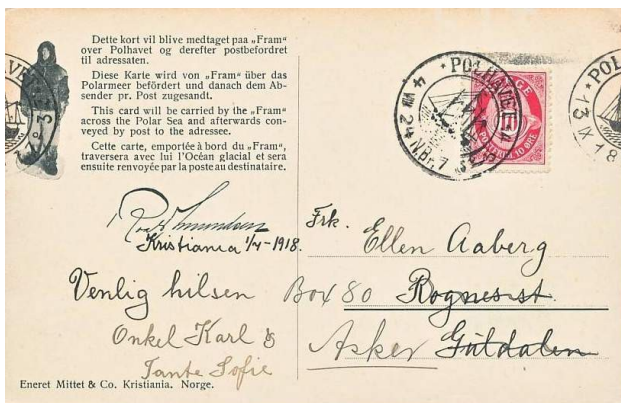 Dette kort vil blive medtaget paa „Fram"
over Polhavet og derefter postbefordret
til adressaten.
Diese Karte wird von „Fram" über das
Polarmeer befördert und danach dem Ab-
sender pr. Post zugesandt.
This card will be carried by the „Fram"
across the Polar Sea and afterwards con-
veyed by post to the adressee.
Cette carte, emportée à bord du „Fram",
traversera avec lui l'Océan glacial et sera
ensuite renvoyée par la poste au destinataire.
POLHAVET
4 VII 24
NORGE
POSTFRIM. 10 ØRE
13 IX 18
Roald Amundsen
Kristiania 1/4-1918.
Frk. Ellen Aaberg
Box 80 Rognes st.
Asker Guldalen
Venlig hilsen
Onkel Karl &
Tante Sofie
Eneret Mittet & Co. Kristiania. Norge.